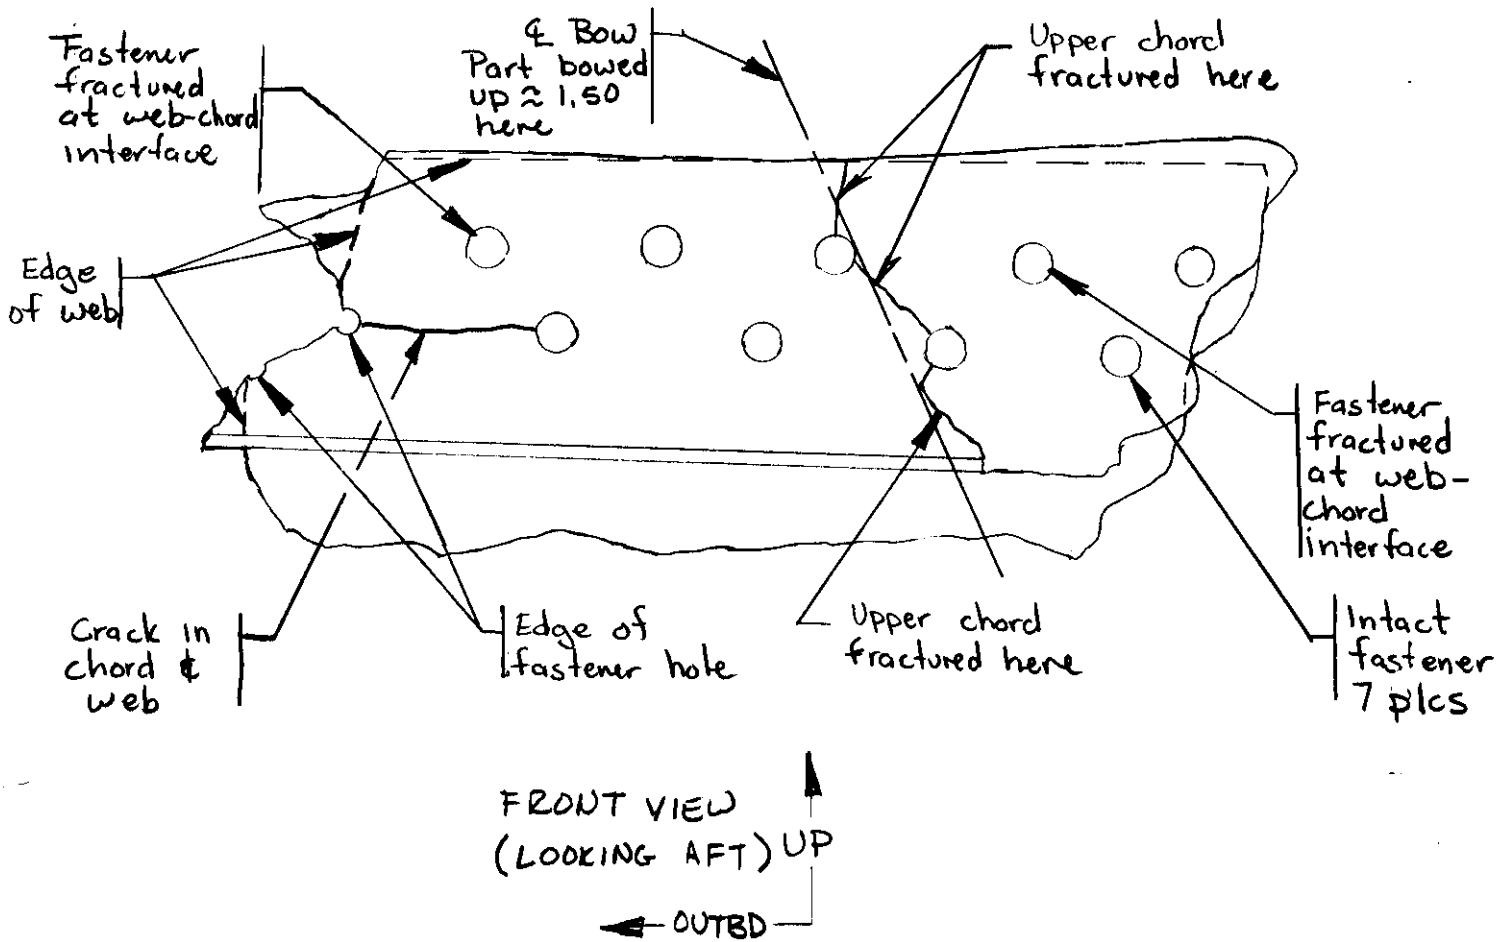 Fastener
fractured
at web-chord
interface
℄ Bow
Part bowed
up ≈ 1.50
here
Upper chord
fractured here
Edge
of web
Fastener
fractured
at web-
chord
interface
Crack in
chord &
web
Edge of
fastener hole
Upper chord
fractured here
Intact
fastener
7 plcs
FRONT VIEW
(LOOKING AFT)
UP
OUTBD